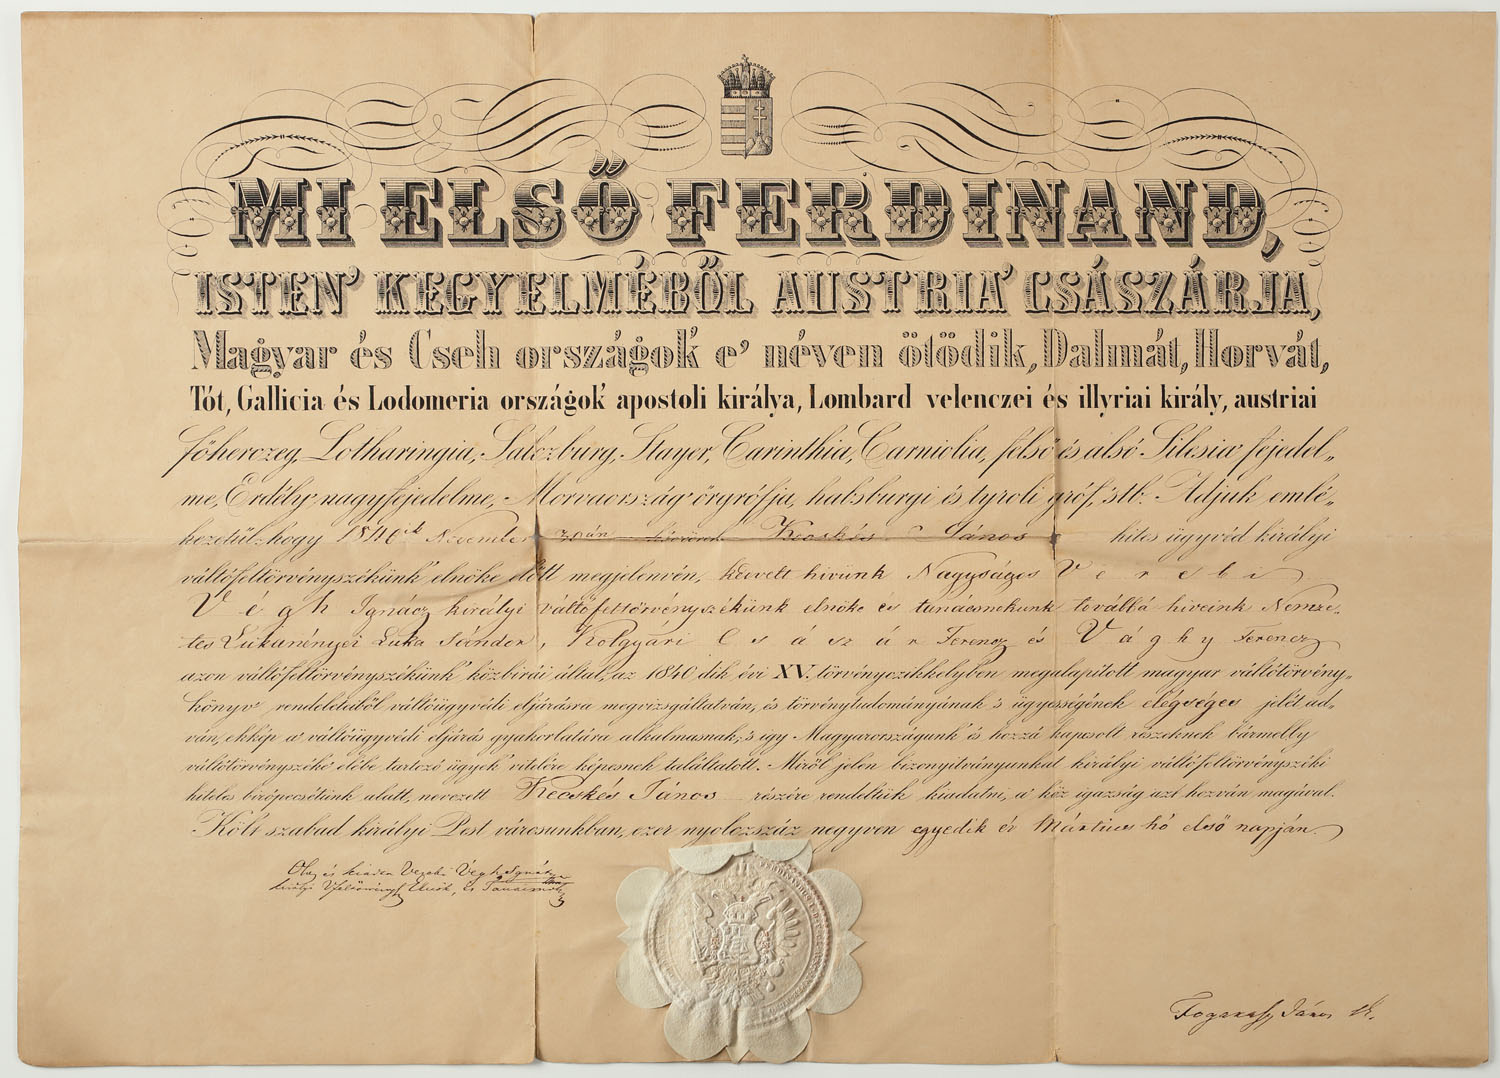 MI ELSŐ FERDINAND,
ISTEN' KEGYELMÉBŐL AUSTRIA' CSÁSZÁRJA,
Magyar és Cseh országok' e' néven ötödik, Dalmát, Horvát,
Tót, Gallicia és Lodomeria országok' apostoli királya, Lombard velenczei és illyriai király, austriai
főherczeg, Lotharingia, Salczburg, Stayer, Carinthia, Carniolia, felső és alsó Silesia' fejedel„
me, Erdély' nagyfejedelme, Morvaország' őrgrófja, habsburgi és tyroli gróf, 'stb. Adjuk emlé„
kezetűl: hogy 1840ik November 30án Kecskés János hites ügyvéd királyi
váltófeltörvényszékünk' elnöke előtt megjelenvén, kedvelt hívünk Nagyságos Verebi
Végh Ignácz királyi váltófeltörvényszékünk elnöke és tanácsnokunk továbbá híveink Nemze„
tes Luka Sándor, Kolgyári Császár Ferencz és Vághy Ferencz
azon váltófeltörvényszékünk' közbirái által, az 1840dik évi XV. törvényczikkelyben megalapított magyar váltótörvény„
könyv' rendeleteiből váltóügyvédi eljárásra megvizsgáltatván, és törvénytudományának 's ügyességének elégséges jelét ad„
ván, ekkép a' váltóügyvédi eljárás gyakorlatára alkalmasnak, 's így Magyarországunk' és hozzá kapcsolt részeknek bármelly
váltótörvényszéke' elébe tartozó ügyek' vitelére képesnek találtatott. Miről jelen bizonyítványunkat királyi váltófeltörvényszéki
hiteles birópecsétünk alatt, nevezett Kecskés János részére rendeltük kiadatni, a' köz igazság azt hozván magával.
Költ szabad királyi Pest városunkban, ezer nyolczszáz negyven egyedik év Mártius hó első napján.
Végh Ignácz
királyi Elnök, és Tanácsnok
János